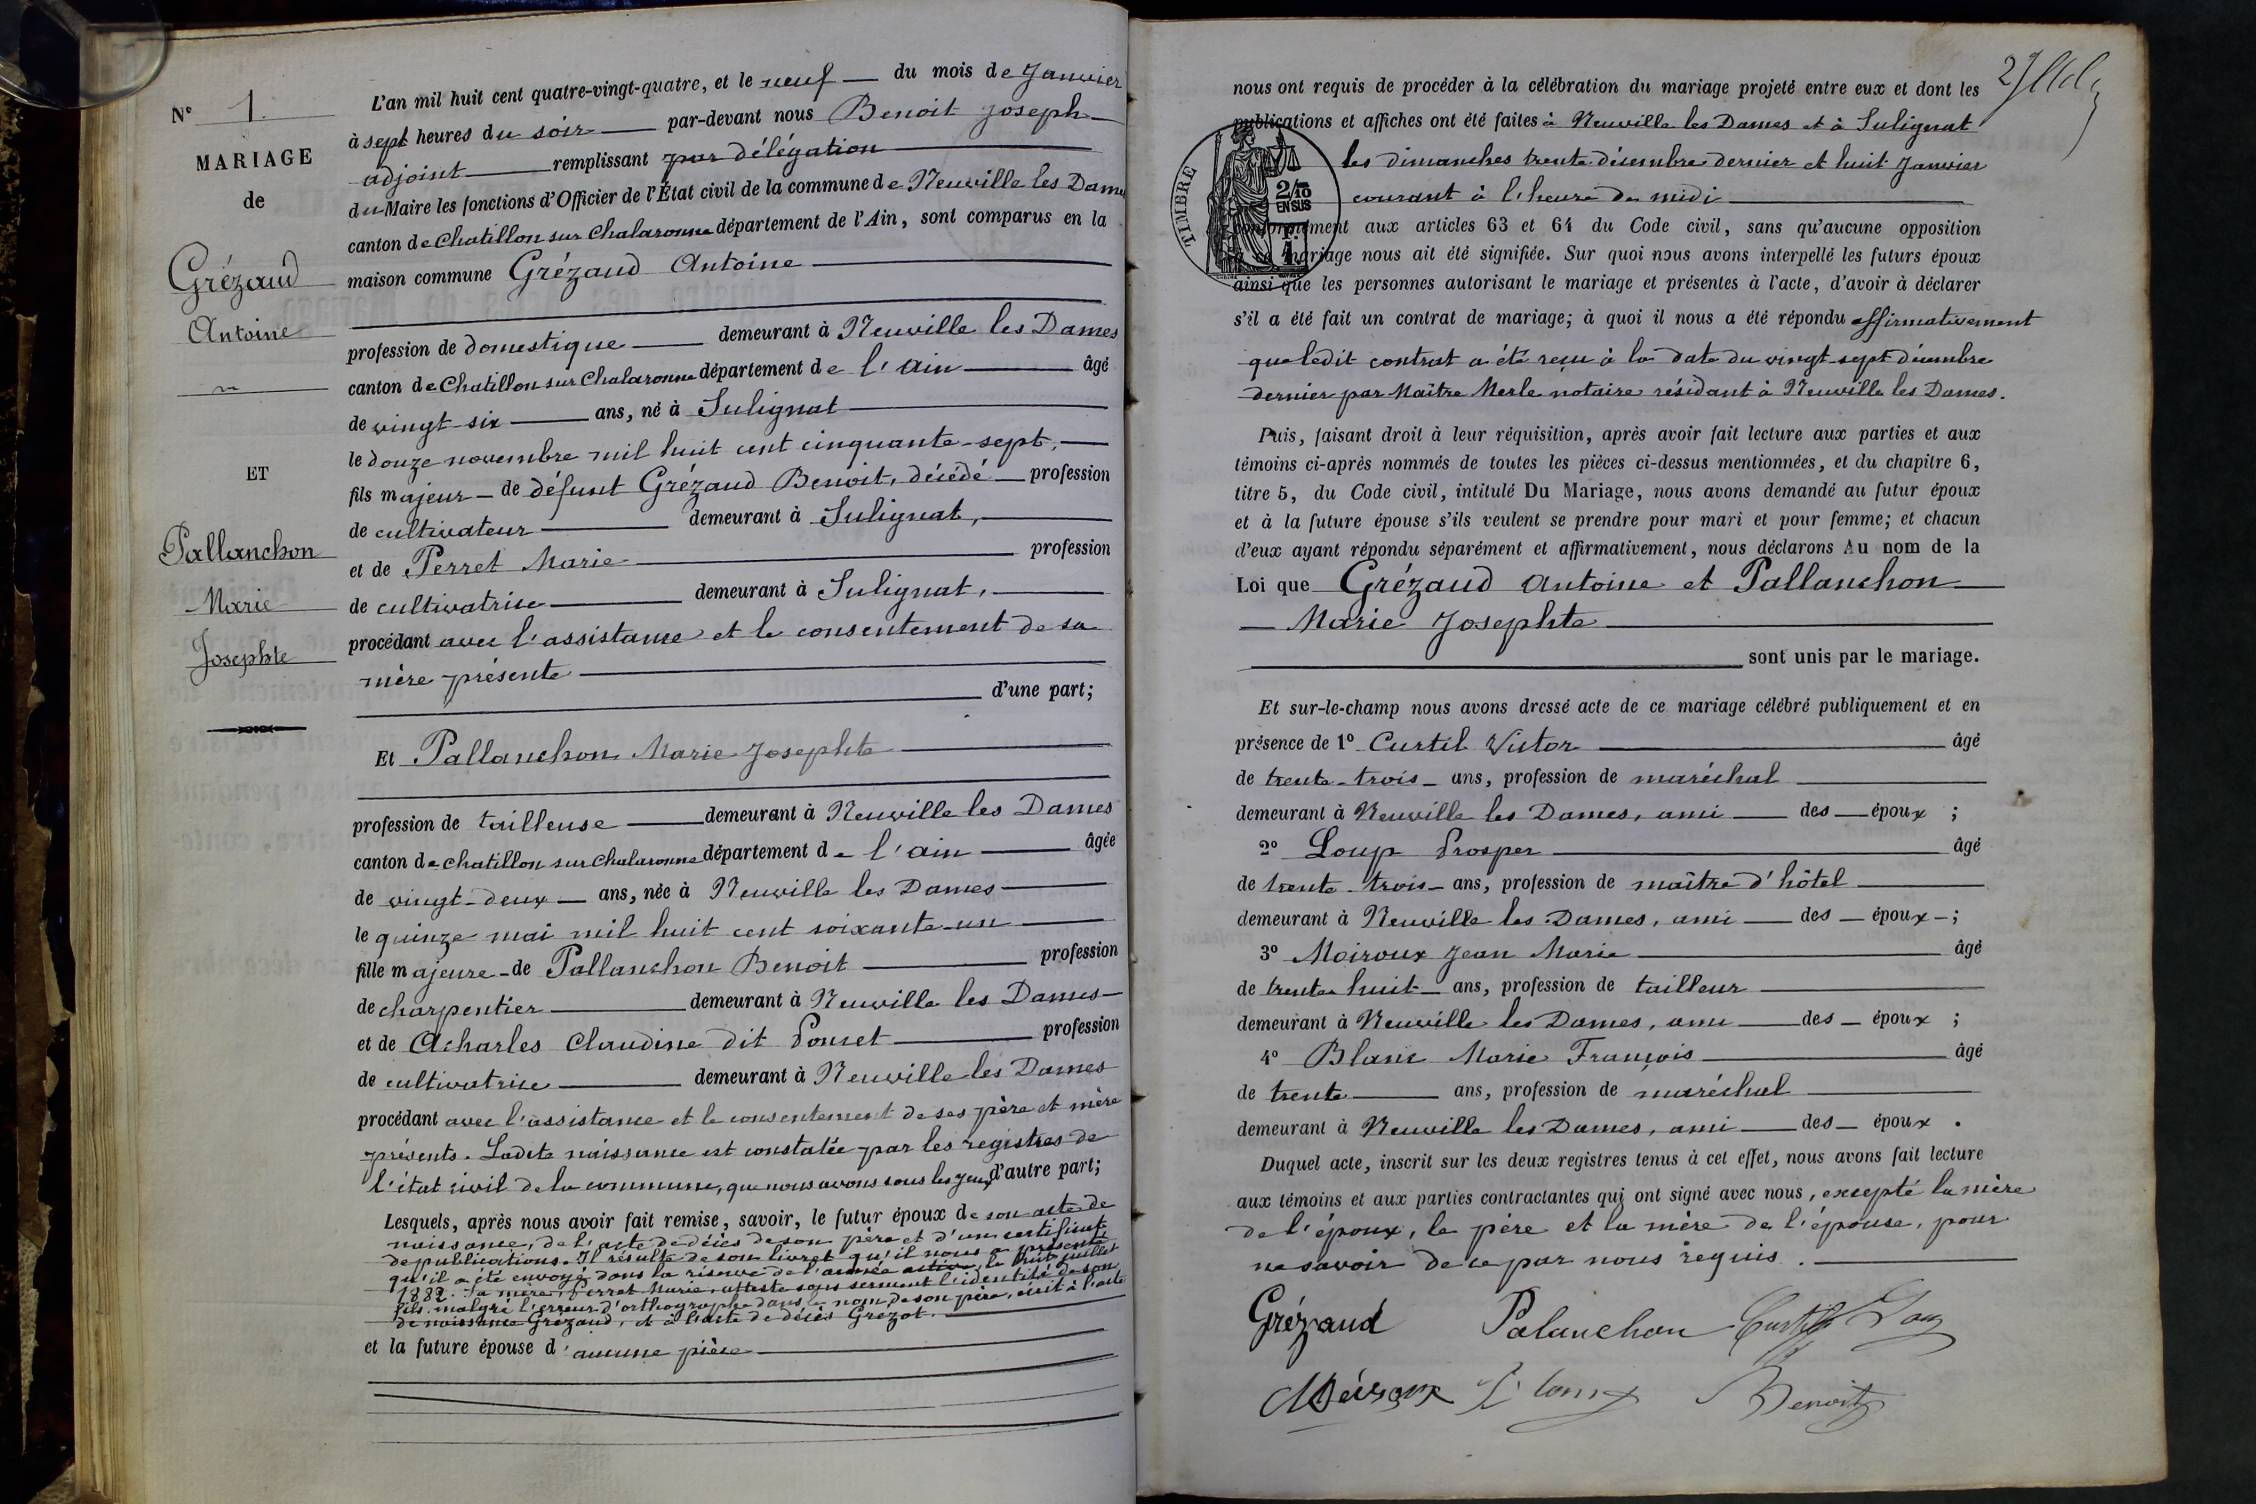 N° 1.
MARIAGE
de
Grézaud
Antoine
ET
Pallanchon
Marie
Josephte
L'an mil huit cent quatre-vingt-quatre, et le neuf du mois de Janvier
à sept heures du soir par-devant nous Benoit Joseph
adjoint remplissant par délégation
du Maire les fonctions d'Officier de l'État civil de la commune de Neuville les Dames
canton de Chatillon sur Chalaronne département de l'Ain, sont comparus en la
maison commune Grézaud Antoine
profession de domestique demeurant à Neuville les Dames
canton de Chatillon sur Chalaronne département de l'Ain âgé
de vingt-six ans, né à Sulignat
le douze novembre mil huit cent cinquante-sept,
fils majeur de défunt Grézaud Benoit, décédé profession
de cultivateur demeurant à Sulignat,
et de Perret Marie profession
de cultivatrice demeurant à Sulignat,
procédant avec l'assistance et le consentement de sa
mère présente
d'une part;
Et Pallanchon Marie Josephte
profession de tailleuse demeurant à Neuville les Dames
canton de Chatillon sur Chalaronne département de l'Ain âgée
de vingt-deux ans, née à Neuville les Dames
le quinze mai mil huit cent soixante-un
fille majeure de Pallanchon Benoit profession
de charpentier demeurant à Neuville les Dames
et de Acharles Claudine dit Poncet profession
de cultivatrice demeurant à Neuville les Dames
procédant avec l'assistance et le consentement de ses père et mère
présents. Ladite naissance est constatée par les registres de
l'état civil de la commune, que nous avons sous les yeux d'autre part;
Lesquels, après nous avoir fait remise, savoir, le futur époux de son acte de
naissance, de l'acte de décès de son père et d'un certificat
de publications. Il résulte de son livret qu'il nous a présenté
qu'il a été envoyé dans la réserve de l'armée active, le huit juillet
1882. Sa mère, Perret Marie, atteste sous serment l'identité de son
fils malgré l'erreur d'orthographe dans le nom de son père, écrit à l'acte
de naissance Grézaud, et à l'acte de décès Grézot.
et la future épouse d'aucune pièce
nous ont requis de procéder à la célébration du mariage projeté entre eux et dont les
publications et affiches ont été faites à Neuville les Dames et à Sulignat
les dimanches trente décembre dernier et huit Janvier
courant à l'heure de midi
TIMBRE
2/10
EN SUS
conformément aux articles 63 et 64 du Code civil, sans qu'aucune opposition
mariage nous ait été signifiée. Sur quoi nous avons interpellé les futurs époux
ainsi que les personnes autorisant le mariage et présentes à l'acte, d'avoir à déclarer
s'il a été fait un contrat de mariage; à quoi il nous a été répondu affirmativement
que ledit contrat a été reçu à la date du vingt-sept décembre
dernier par Maître Merle notaire résidant à Neuville les Dames.
Puis, faisant droit à leur réquisition, après avoir fait lecture aux parties et aux
témoins ci-après nommés de toutes les pièces ci-dessus mentionnées, et du chapitre 6,
titre 5, du Code civil, intitulé Du Mariage, nous avons demandé au futur époux
et à la future épouse s'ils veulent se prendre pour mari et pour femme; et chacun
d'eux ayant répondu séparément et affirmativement, nous déclarons Au nom de la
Loi que Grézaud Antoine et Pallanchon
Marie Josephte
sont unis par le mariage.
Et sur-le-champ nous avons dressé acte de ce mariage célébré publiquement et en
présence de 1° Curtil Victor âgé
de trente-trois ans, profession de maréchal
demeurant à Neuville les Dames, ami des époux ;
2° Loup Prosper âgé
de trente-trois ans, profession de maître d'hôtel
demeurant à Neuville les Dames, ami des époux ;
3° Moiroux Jean Marie âgé
de trente huit ans, profession de tailleur
demeurant à Neuville les Dames, ami des époux ;
4° Blanc Marie François âgé
de trente ans, profession de maréchal
demeurant à Neuville les Dames, ami des époux .
Duquel acte, inscrit sur les deux registres tenus à cet effet, nous avons fait lecture
aux témoins et aux parties contractantes qui ont signé avec nous, excepté la mère
de l'époux, le père et la mère de l'épouse, pour
ne savoir de ce par nous requis.
Grézaud Palanchon Curtil
Moiroux Benoit